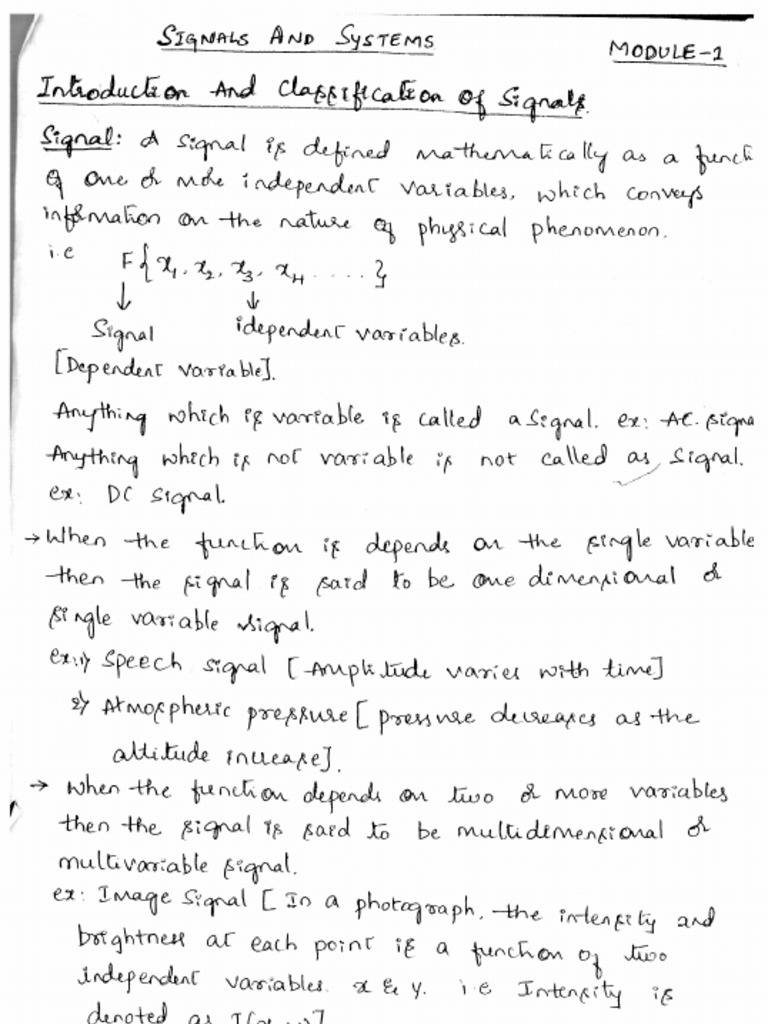 SIGNALS AND SYSTEMS
MODULE-1
Introduction And Classification of Signals.
Signal: A signal is defined mathematically as a functi
of one or more independent variables, which conveys
information on the nature of physical phenomenon.
i.e F{x1, x2, x3, x4 ....}
↓ ↓
Signal idependent variables.
[Dependent variable].
Anything which is variable is called a signal. ex: AC. signa
Anything which is not variable is not called as signal.
ex: DC signal.
→ When the function is depends on the single variable
then the signal is said to be one dimensional or
single variable signal.
ex: 1) Speech signal [Amplitude varies with time]
2) Atmospheric pressure [pressure decreases as the
altitude increase].
→ When the function depends on two or more variables
then the signal is said to be multidimensional or
multivariable signal.
ex: Image Signal [In a photograph, the intensity and
brightness at each point is a function of two
independent variables. x & y. i.e Intensity is
denoted as